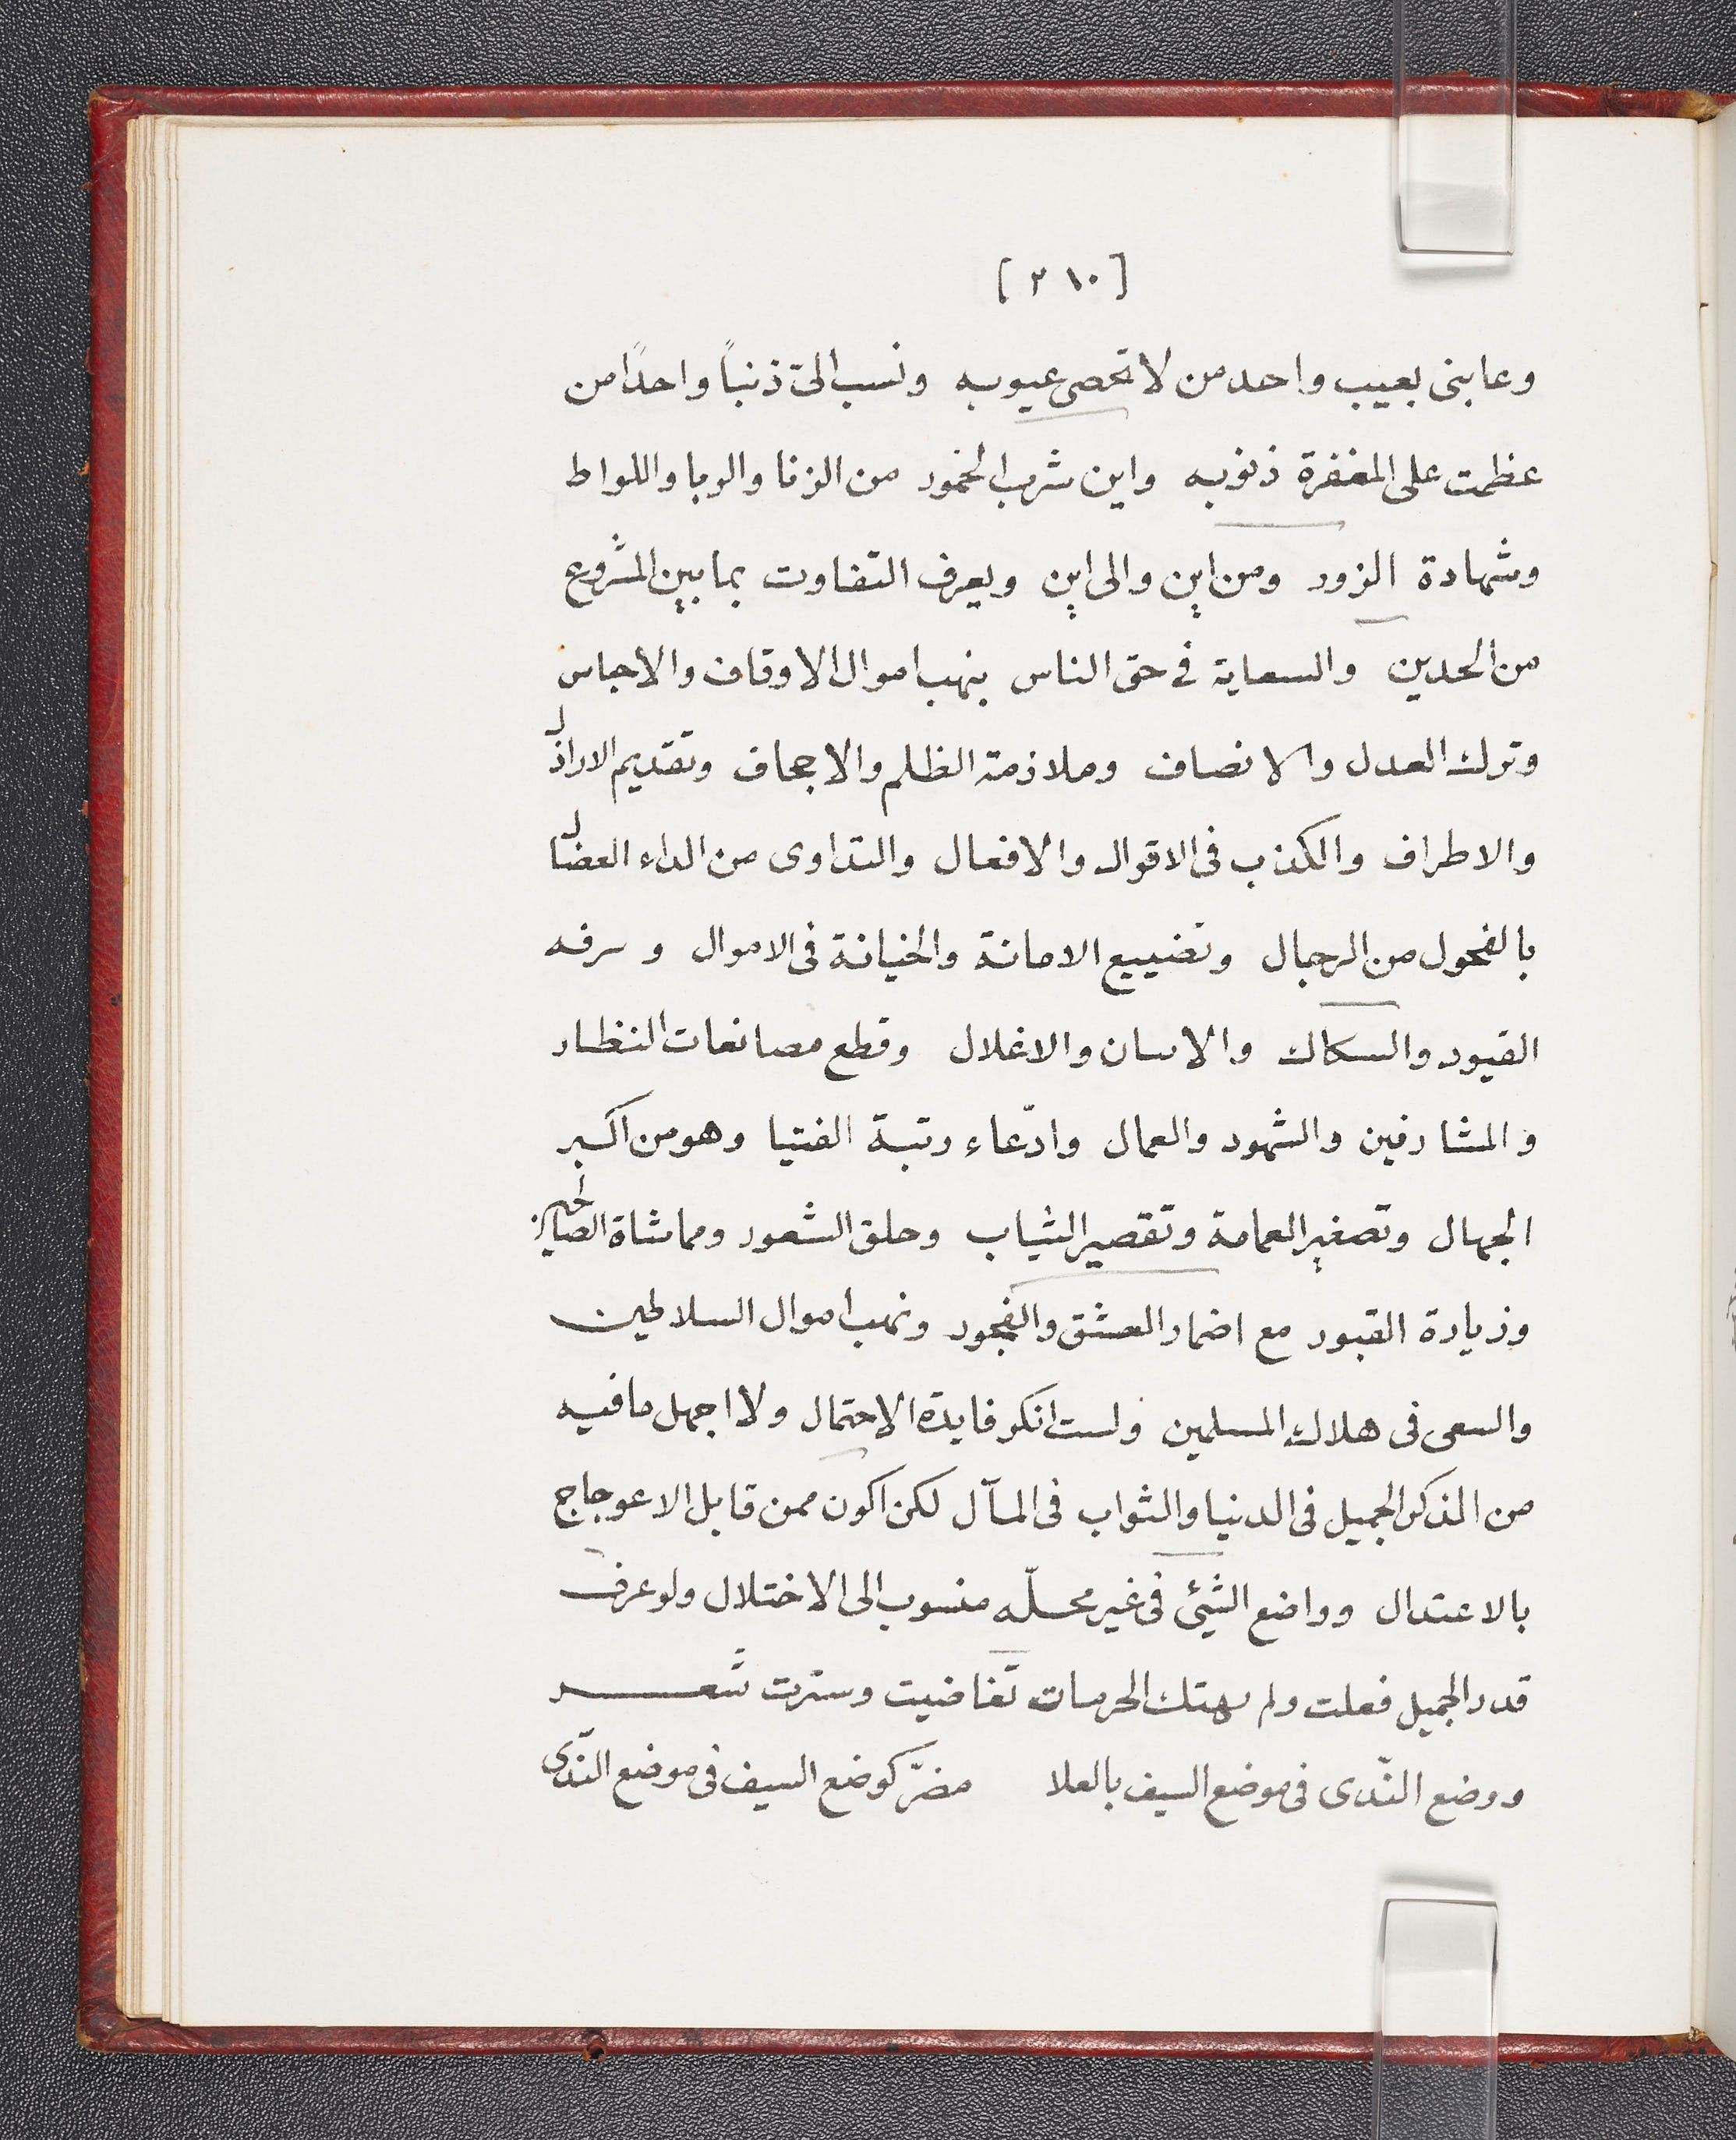 [٢١٠]
وعابنى بعيب واحد من لا تحصى عيوبه ونسب الىّ ذنباً واحداً من
عظمت على المغفرة ذنوبه واين شرب الخمور من الزنا والربا واللواط
وشهادة الزور ومن اين والى اين ويعرف التفاوت بما بين المشروع
من الحدين والسعاية فى حق الناس بنهب اموال الاوقاف والاحباس
وترك العدل والانصاف وملازمة الظلم والاجحاف وتقديم الاراذل
والاطراف والكذب فى الاقوال والافعال والتداوى من الداء العضال
بالفحول من الرجال وتضييع الامانة والخيانة فى الاموال وسرقه
القيود والسكاك والاغلال وقطع مصانعات النظار
والمشارفين والشهود والعمال وادّعاء رتبة الفتيا وهو من اكبر
الجهال وتصغير العمامة وتقصير الثياب وحلق الشعور ومماشاة
وزيارة القبور مع اضمار العشق والفجور ونهب اموال السلاطين
والسعى فى هلاك المسلمين ولست انكر فايدة الاحتمال ولا اجهل ما فيه
من الذكر الجميل فى الدنيا والثواب فى المآل لكن اكون ممن قابل الاعوجاج
بالاعتدال وواضع الشئ فى غير محلّه منسوب الى الاختلال ولو عرف
قدر الجميل فعلت ولم يهتك الحرمات تغاضيت وسترت شعر
ووضع النّدى فى موضع السيف بالعلا مضرّ كوضع السيف فى موضع النّدى